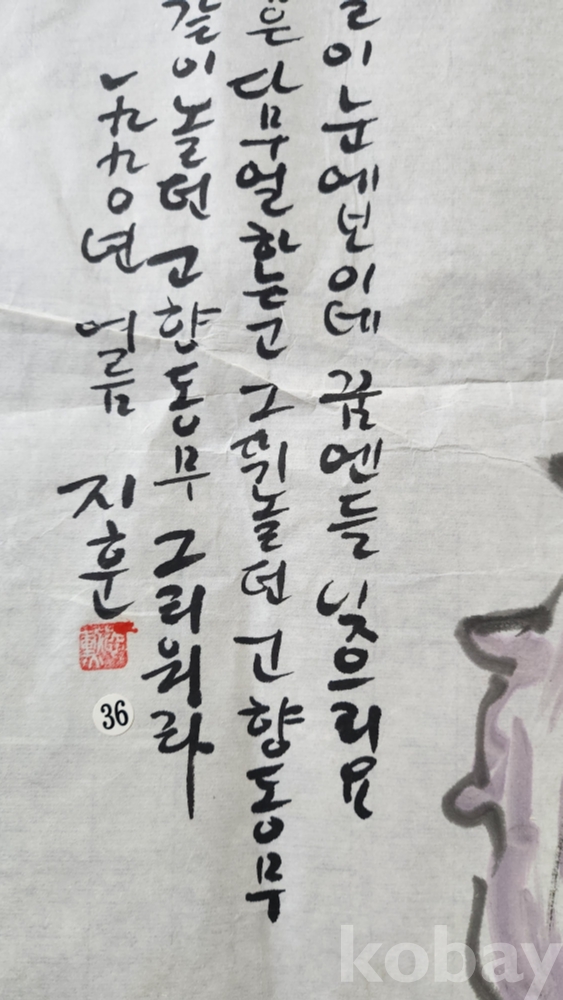 이 눈에 보이네 꿈엔들 잊으리요
은 다 무얼 하는고 그 뛰놀던 고향동무
같이 놀던 고향동무 그리워라
一九九0년 여름 지훈
36
kobay